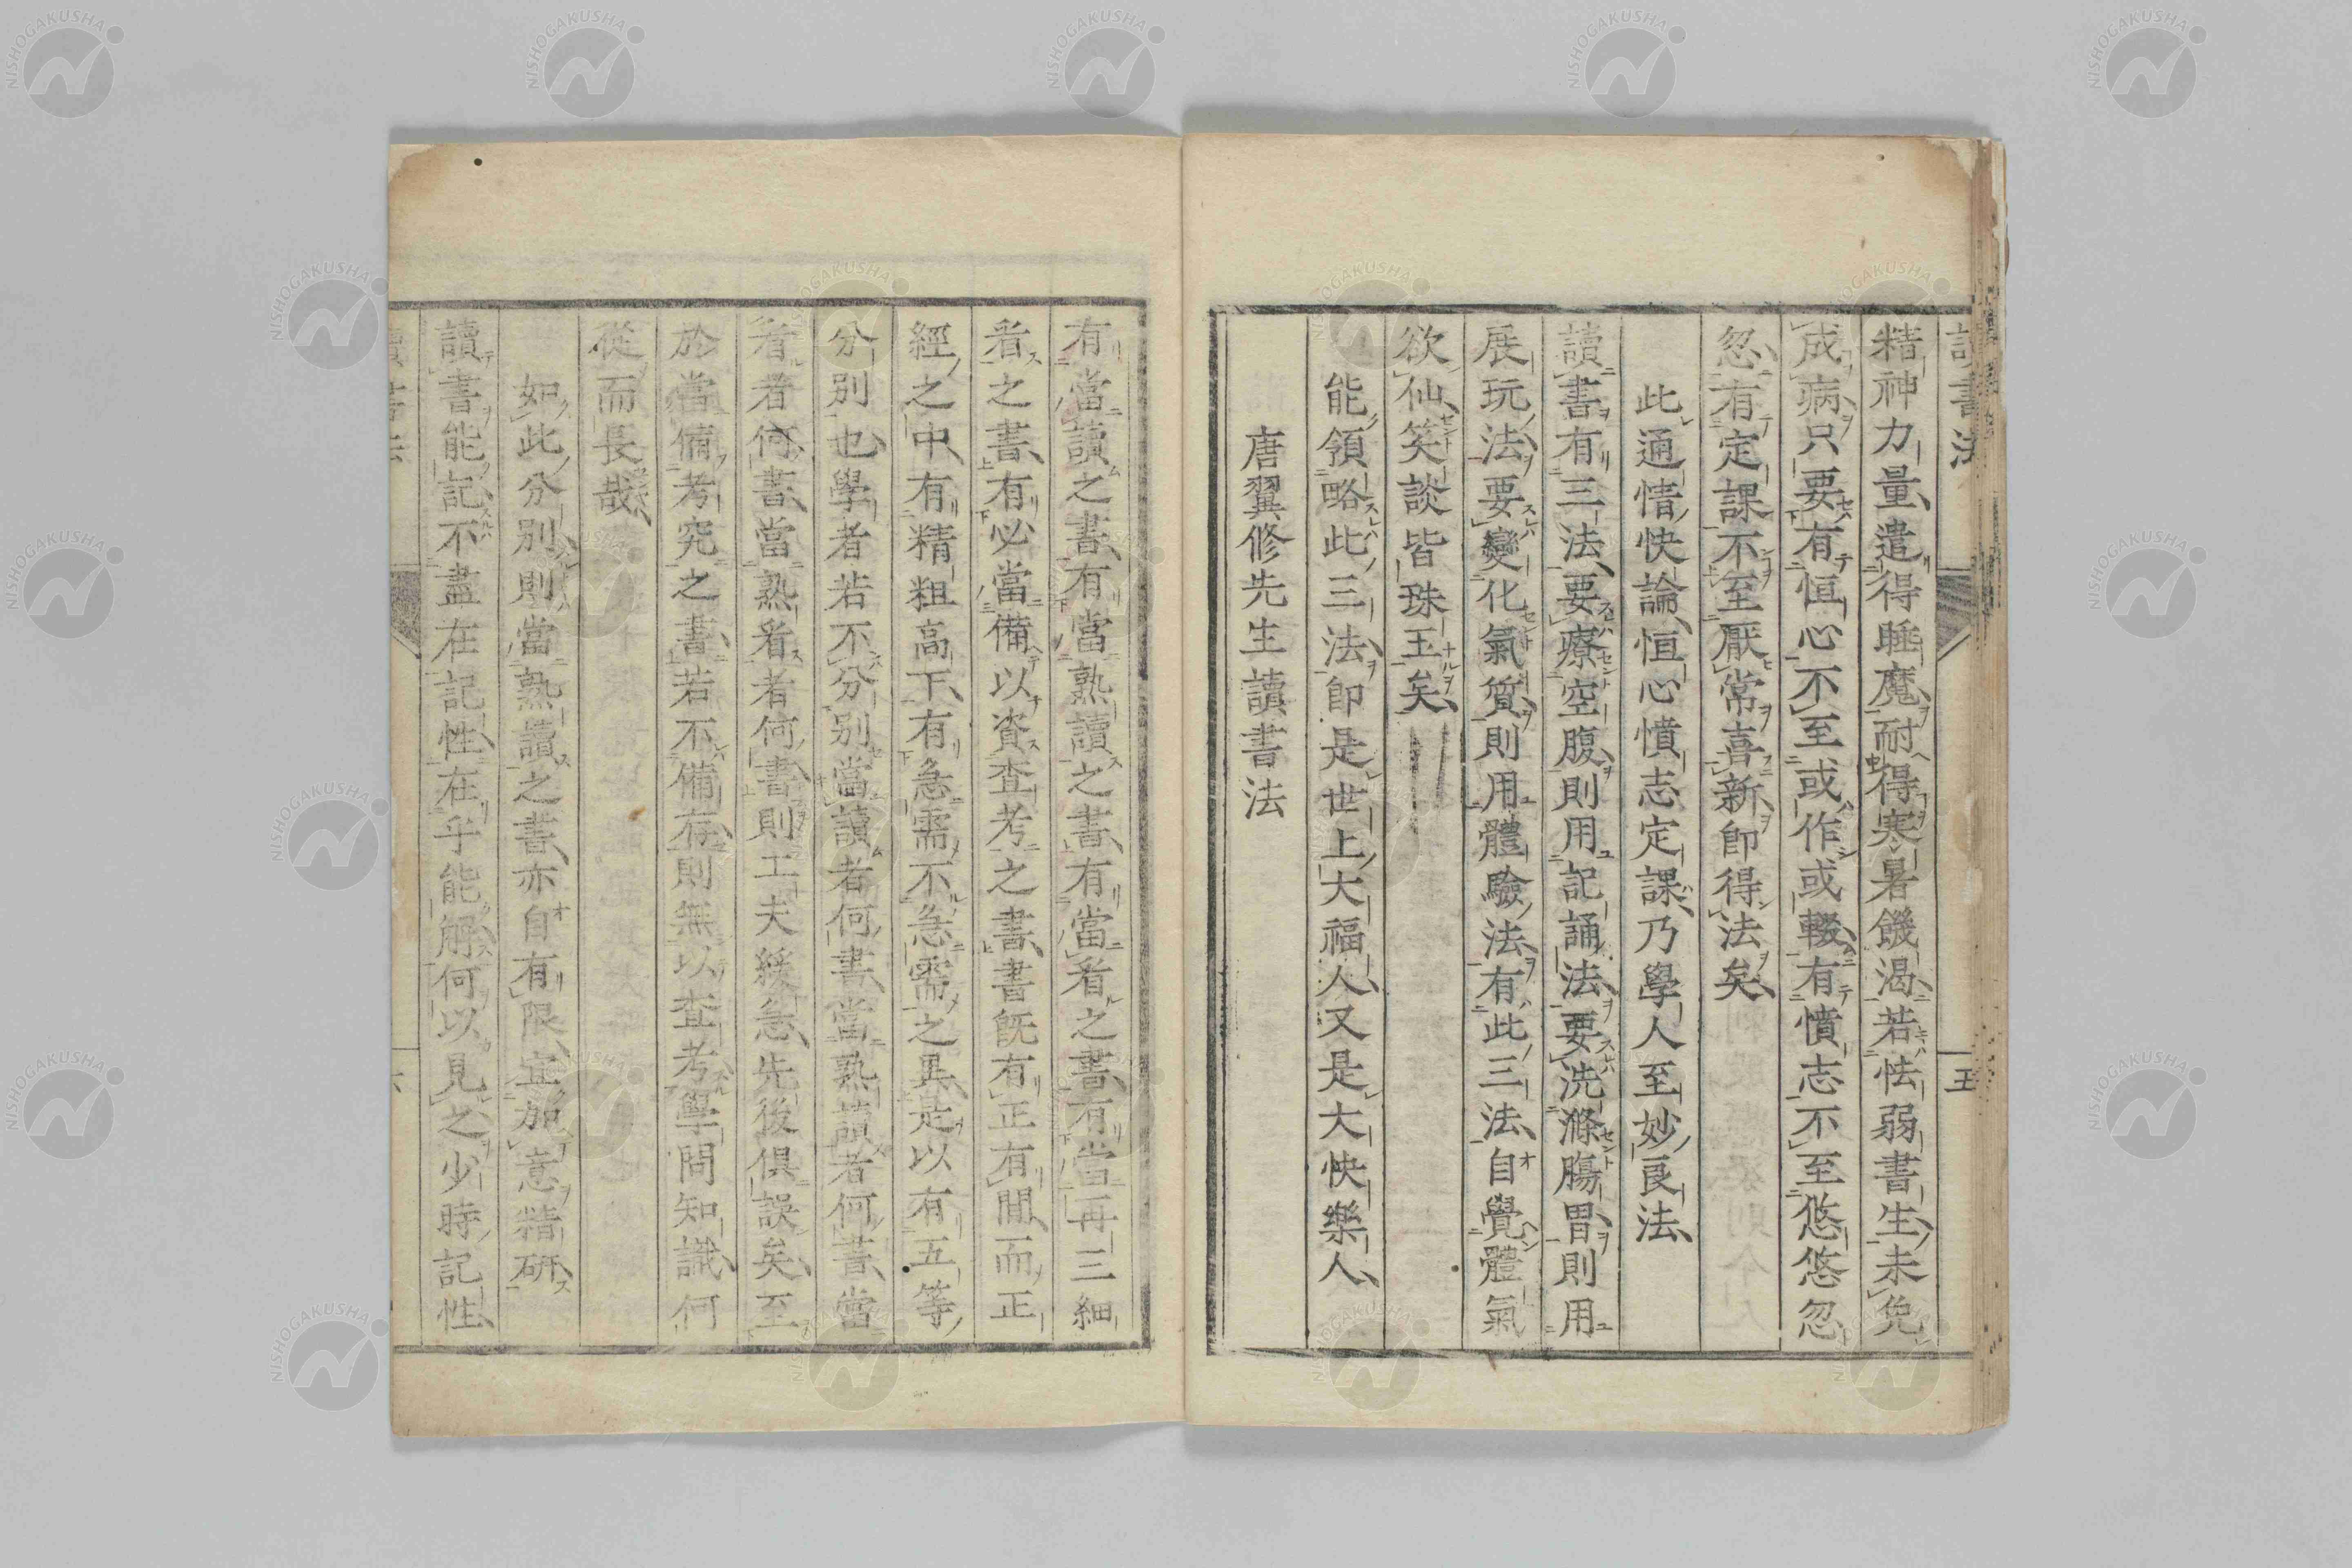 精神力量遣得睡魔耐得寒暑饑渴若怯弱書生未免
成病只要有恒心不至或作或輟有憤志不至悠悠忽
忽有定課不至厭常喜新即得法矣
此通情快論恒心憤志定課乃學人至妙良法
讀書有三法要療空腹則用記誦法要洗滌腸胃則用
展玩法要變化氣質則用體驗法有此三法自覺體氣
欲仙笑談皆珠玉矣
能領略此三法即是世上大福人又是大快樂人
唐翼修先生讀書法
有當讀之書有當熟讀之書有當看之書有當再三細
看之書有必當備以資查考之書書既有正有閒而正
經之中有精粗高下有急需不急需之異是以有五等
分別也學者若不分別當讀者何書當熟讀者何書當
看者何書當熟看者何書則工夫緩急先後俱誤矣至
於當備考究之書若不備存則無以查考學問知識何
從而長哉
如此分別則當熟讀之書亦自有限宜加意精研
讀書能記不盡在記性在乎能解何以見之少時記性